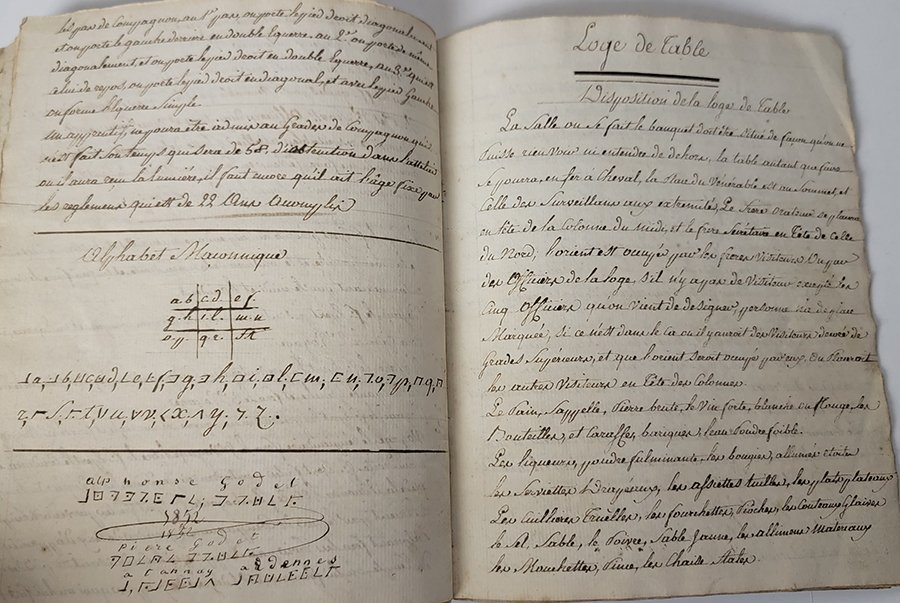 les pas de Compagnon, au 1er pas, on porte le pied droit diagonalement
et on porte le gauche derriere en double Equerre, au 2e on porte de même
diagonalement et on porte le pied droit en double Equerre, au 3e qui est
celui de repos, on porte le pied droit en diagonal, et avec le pied Gauche
on forme l'Equerre Simple
un apprentif ne poura être admis au Grades de Compagnon, qu'il
n'est fait son temps qui sera de 58 d'abstention dans l'attelier
ou il aura reçu la lumière, il faut encore qu'il ait l'âge fixé par
les reglemens qui est de 22 Ans accomplis
Alphabet Maconnique
ab cd ef
gh il mn
op qr st
a b c d e f g h i l m n o p q
r S t u v x y z
alphonse Godet
1852
1852
pierre Godet
a tannay ardennes
Loge de Table
Disposition de la loge de Table
La Salle ou se fait le banquet doit être situé de façon qu'on ne
Puisse rien voir ni entendre de dehors, la table autant que faire
Se pourra, en fer à Cheval, la Place du Vénérable est au Sommet, et
Celle des Surveillans aux extremités, Le frere orateur se placera
en tête de la Colonne du midi, et le frere Secrétaire en Tête de celle
du Nord; l'orient est occupé par les freres Visiteurs Ou par
des Officiers de la loge, S'il n'y a pas de Visiteur excepté les
Cinq Officiers qu'on Vient de designer, personne n'a de place
Marquée, Si ce n'est dans le Ca ou il y auroit des Visiteurs decoré de
Grades Superieurs, et que l'orient Seroit occupé par eux, On
les autres Visiteurs en Tête des Colonnes.
Le Pain, S'appelle, Pierre brute, le Vin forte, blanche ou Rouge, les
Bouteilles, et Caraffes, bariques, l'eau Poudre foible.
Les liqueurs, poudre fulminante, les bougies, allumés etoiles
les Serviettes Drapeaux, les assiettes tuilles, les plats plateaux
Les Cuilliers Truelles, les fourchettes, Pioches, les Couteaux Glaives
le Sel, Sable, le Poivre, Sable Jaune, les allimens Materiaux
les Mouchettes, Pince, les Chaise Stales.